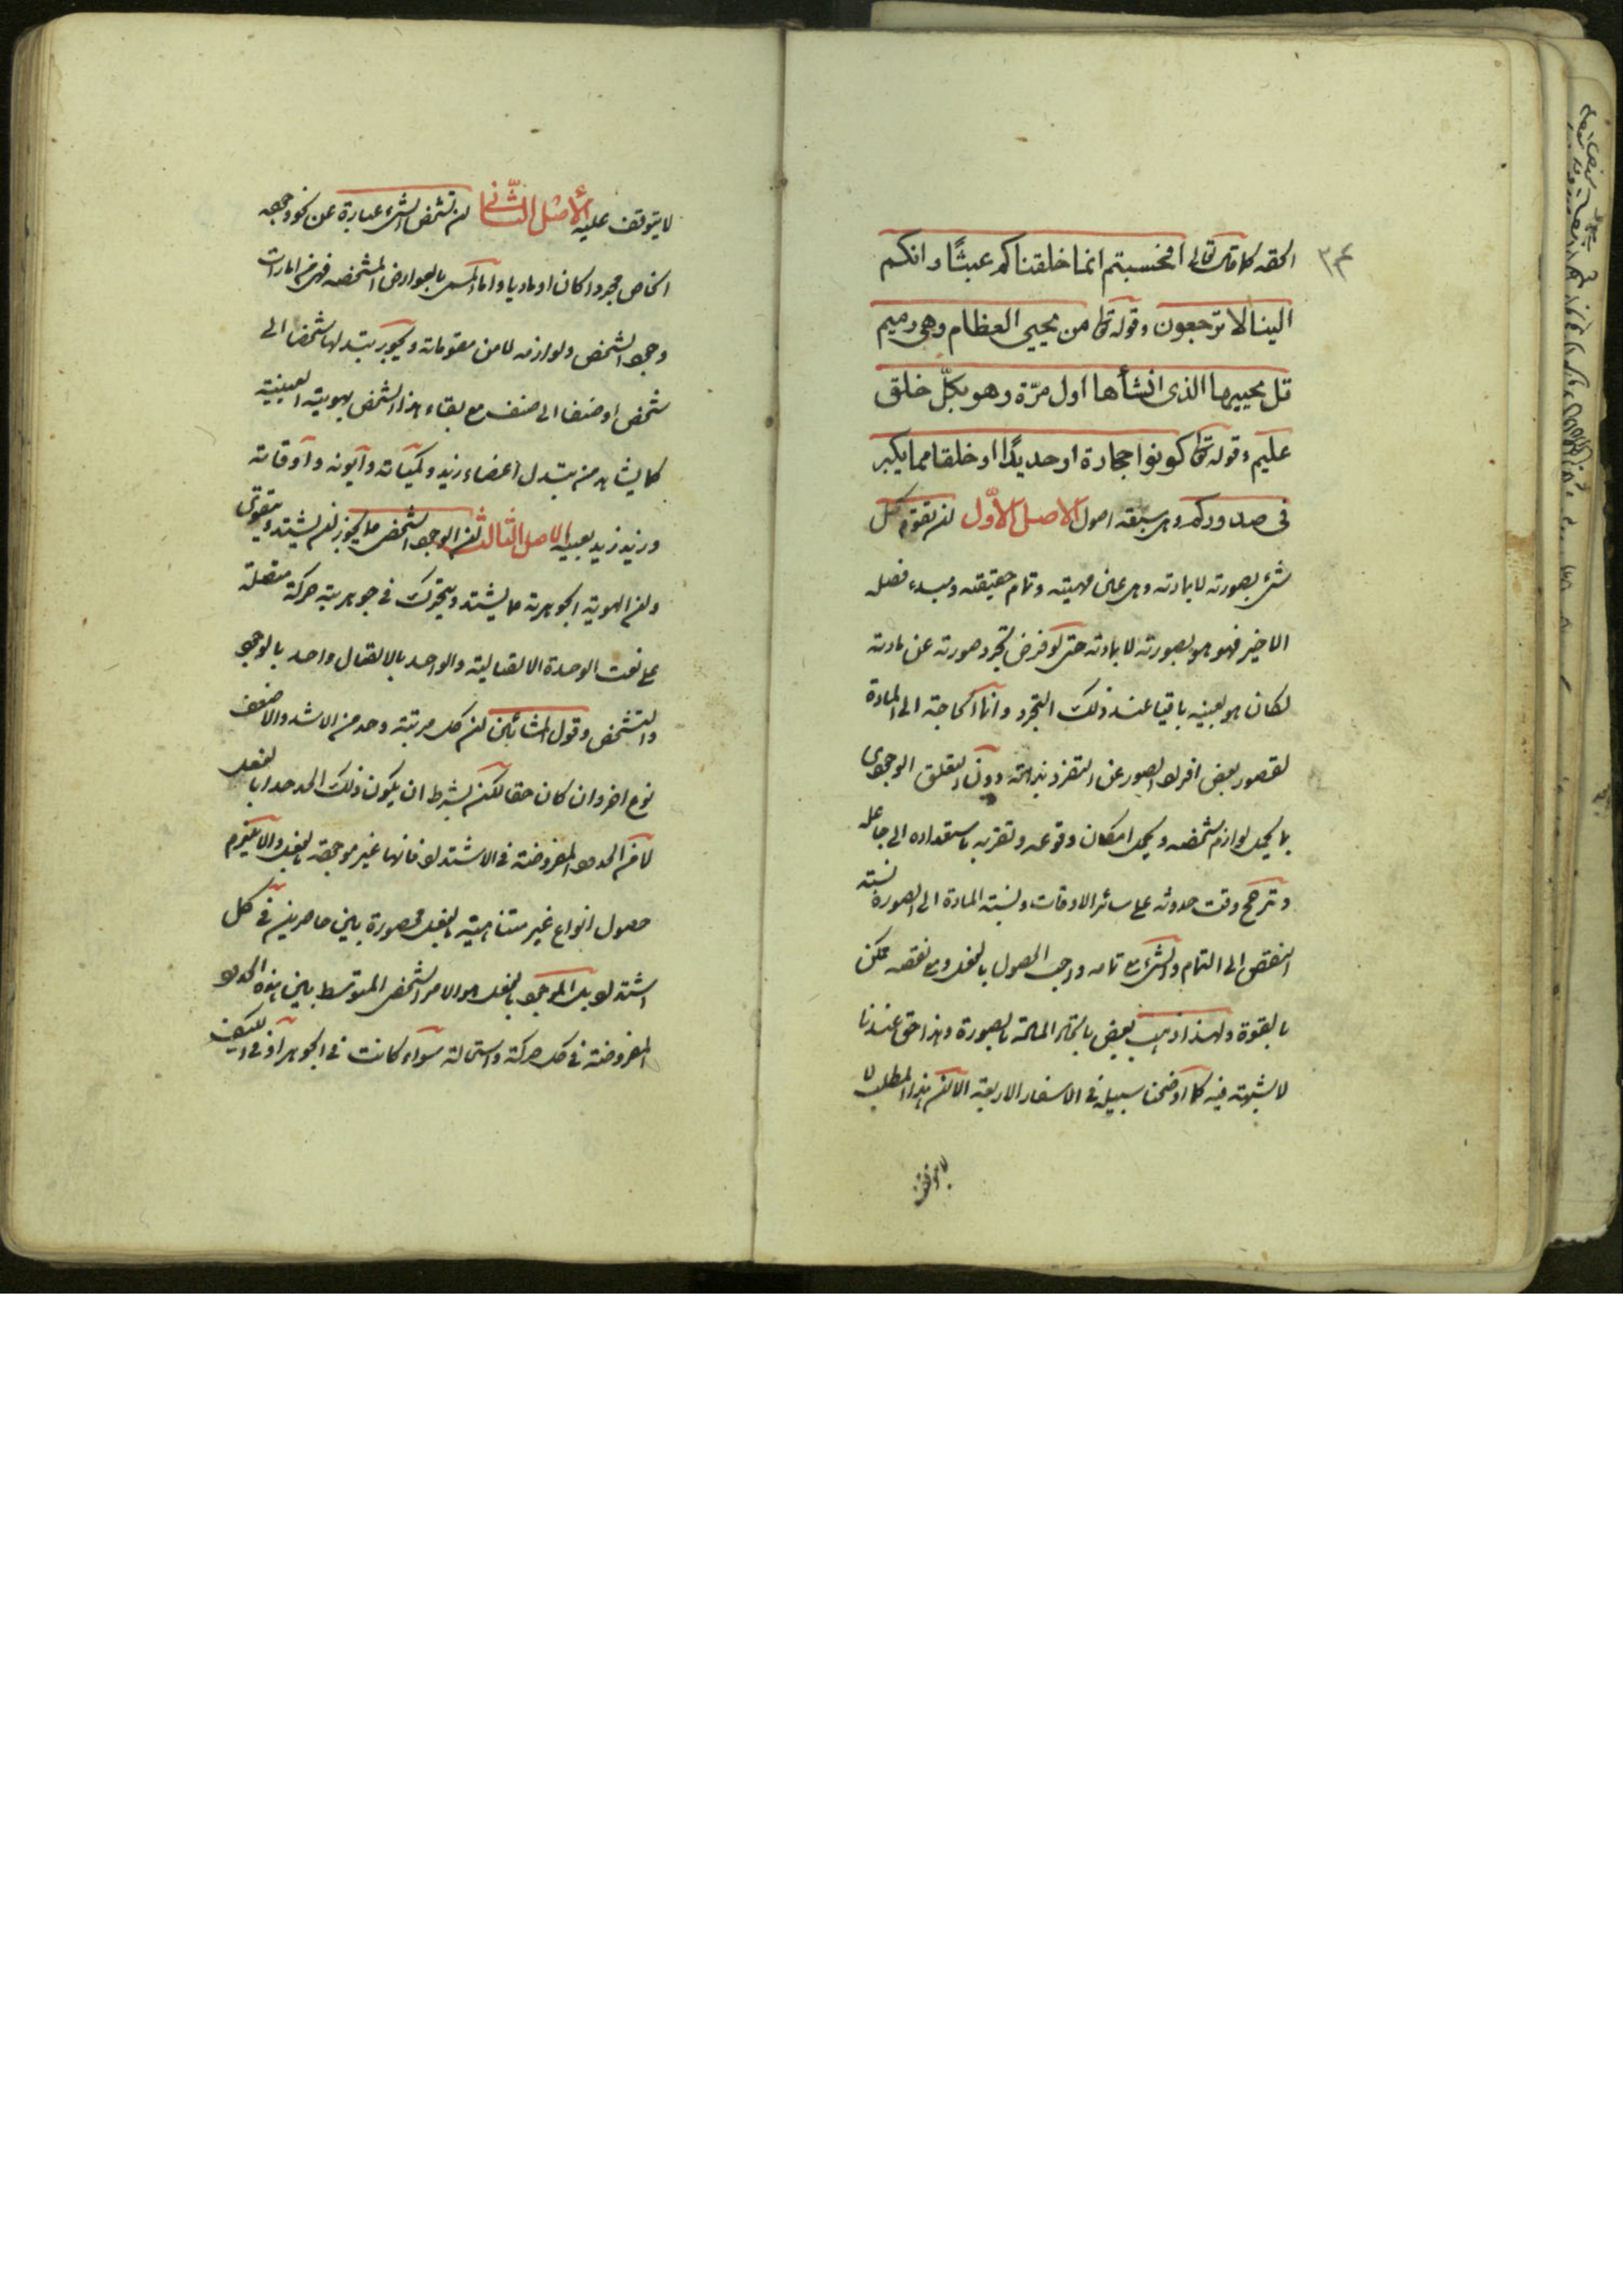 ٣٤
الحقه كما قال تعالى افحسبتم انما خلقناكم عبثًا وانكم
الينا لا ترجعون وقوله تعا من يحيى العظام وهى رميم
قل يحييها الذى انشأها اول مرّة وهو بكلّ خلق
عليم وقوله تعا كونوا حجارة او حديدًا او خلقا مما يكبر
فى صدوركم وهى سبعة اصول الاصل الاوّل ان تقوّم كل
شىء بصورته لا بمادته وهى عين مهيته وتمام حقيقته ومبدء فصله
الاخير فهو هو بصورته لا بمادته حتى لو فرض تجرد صورته عن مادته
لكان هو بعينه باقيا عند ذلك التجرد وانما الحاجة الى المادة
لقصور بعض افراد الصور عن التفرد بذاته دون التعلق الوجودى
بما يحمل لوازم شخصه ويحمل امكان وقوعه وتقربه باستعداده الى جاعله
وترجح وقت حدوثه على سائر الاوقات ونسبة المادة الى الصورة نسبة
النقص الى التمام والشىء مع تمامه واجب الحصول بالفعل ومع نقصه ممكن
بالقوة ولهذا ذهب بعض باتحاد المادة بالصورة وهذا حق عندنا
لا شبهة فيه كما اوضحنا سبيله فى الاسفار الاربعة الا ان هذا المطلب لا
لا يتوقف
لا يتوقف عليه الأصل الثّانى ان تشخص الشىء عبارة عن نحو وجوده
الخاص مجردا كان او ماديا واما المسمى بالعوارض المشخصه فهى من امارات
وجود الشخص ولوازمه لا من مقوماته ويجوز تبدلها شخصا الى
شخص او صنفا الى صنف مع بقاء هذا الشخص بهويته العينية
كما يشاهد من تبدل اعضاء زيد وكميّاته وايونه واوقاته
وزيد زيد بعينه الاصل الثالث ان الوجود الشخصى مما يجوز ان يشتد ويتقوى
وان الهوية الجوهرية مما يشتد ويتحرك فى جوهريته حركة متصلة
على نعت الوحدة الاتصالية والواحد بالاتصال واحد بالوجود
والتشخص وقول المشائين ان كل مرتبة وحد من الاشد والاضعف
نوع اخر وان كان حقا لكن بشرط ان يكون ذلك الحد حدا بالفعل
لا من الحدود المفروضة فى الاشتداد فانها غير موجودة بالفعل والا يلزم
حصول انواع غير متناهية بالفعل محصورة بين حاصرين فى كل
اشتداد بل الموجود بالفعل هو الامر الشخصى المتوسط بين هذه الحدود
المفروضة فى كل حركة واستحالة سواء كانت فى الجوهر او فى الكيف